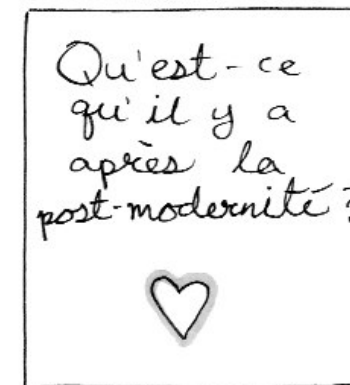 Qu'est-ce
qu'il y a
après la
post-modernité?